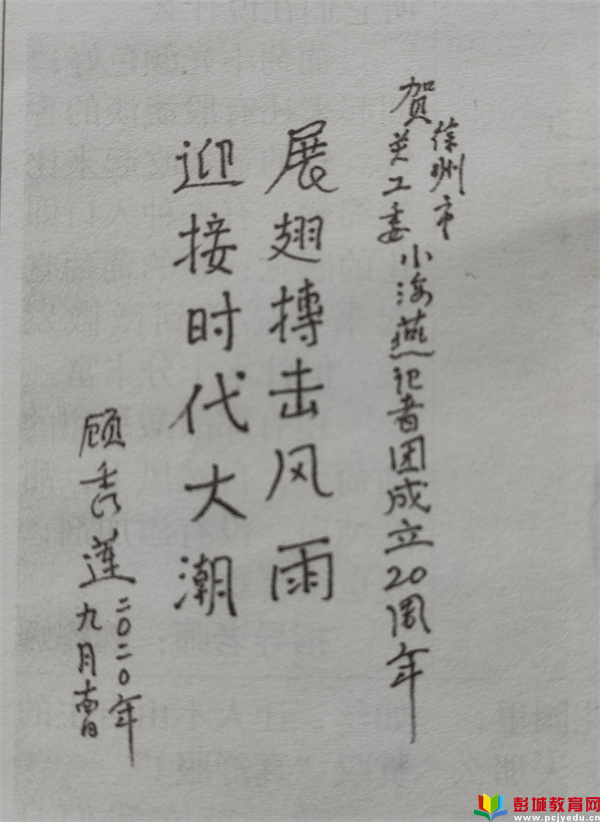 贺徐州市
关工委小海燕记者团成立20周年
展翅搏击风雨
迎接时代大潮
顾秀莲
二〇二〇年
九月
彭城教育网
www.pcjyedu.cn